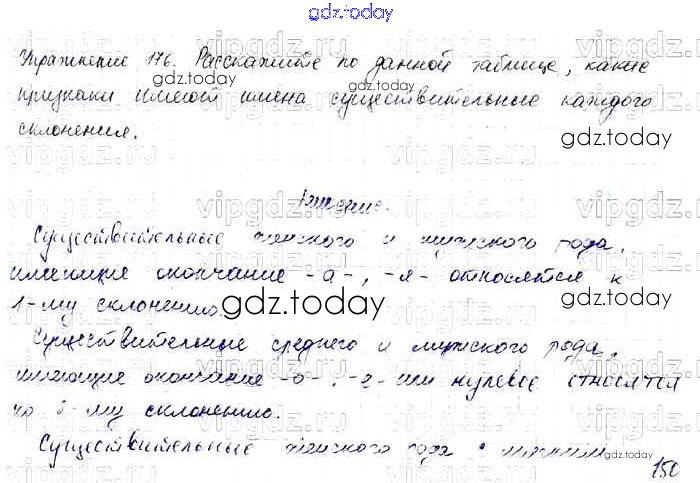 gdz.today
Упражнение 176. Расскажите по данной таблице, какие
признаки имеют имена существительные каждого
склонения.
Решение.
Существительные женского и мужского рода,
имеющие окончание -а-, -я- относятся к
1-му склонению.
Существительные среднего и мужского рода,
имеющие окончание -о-, -е- или нулевое относятся
ко 2-му склонению.
Существительные женского рода с
150